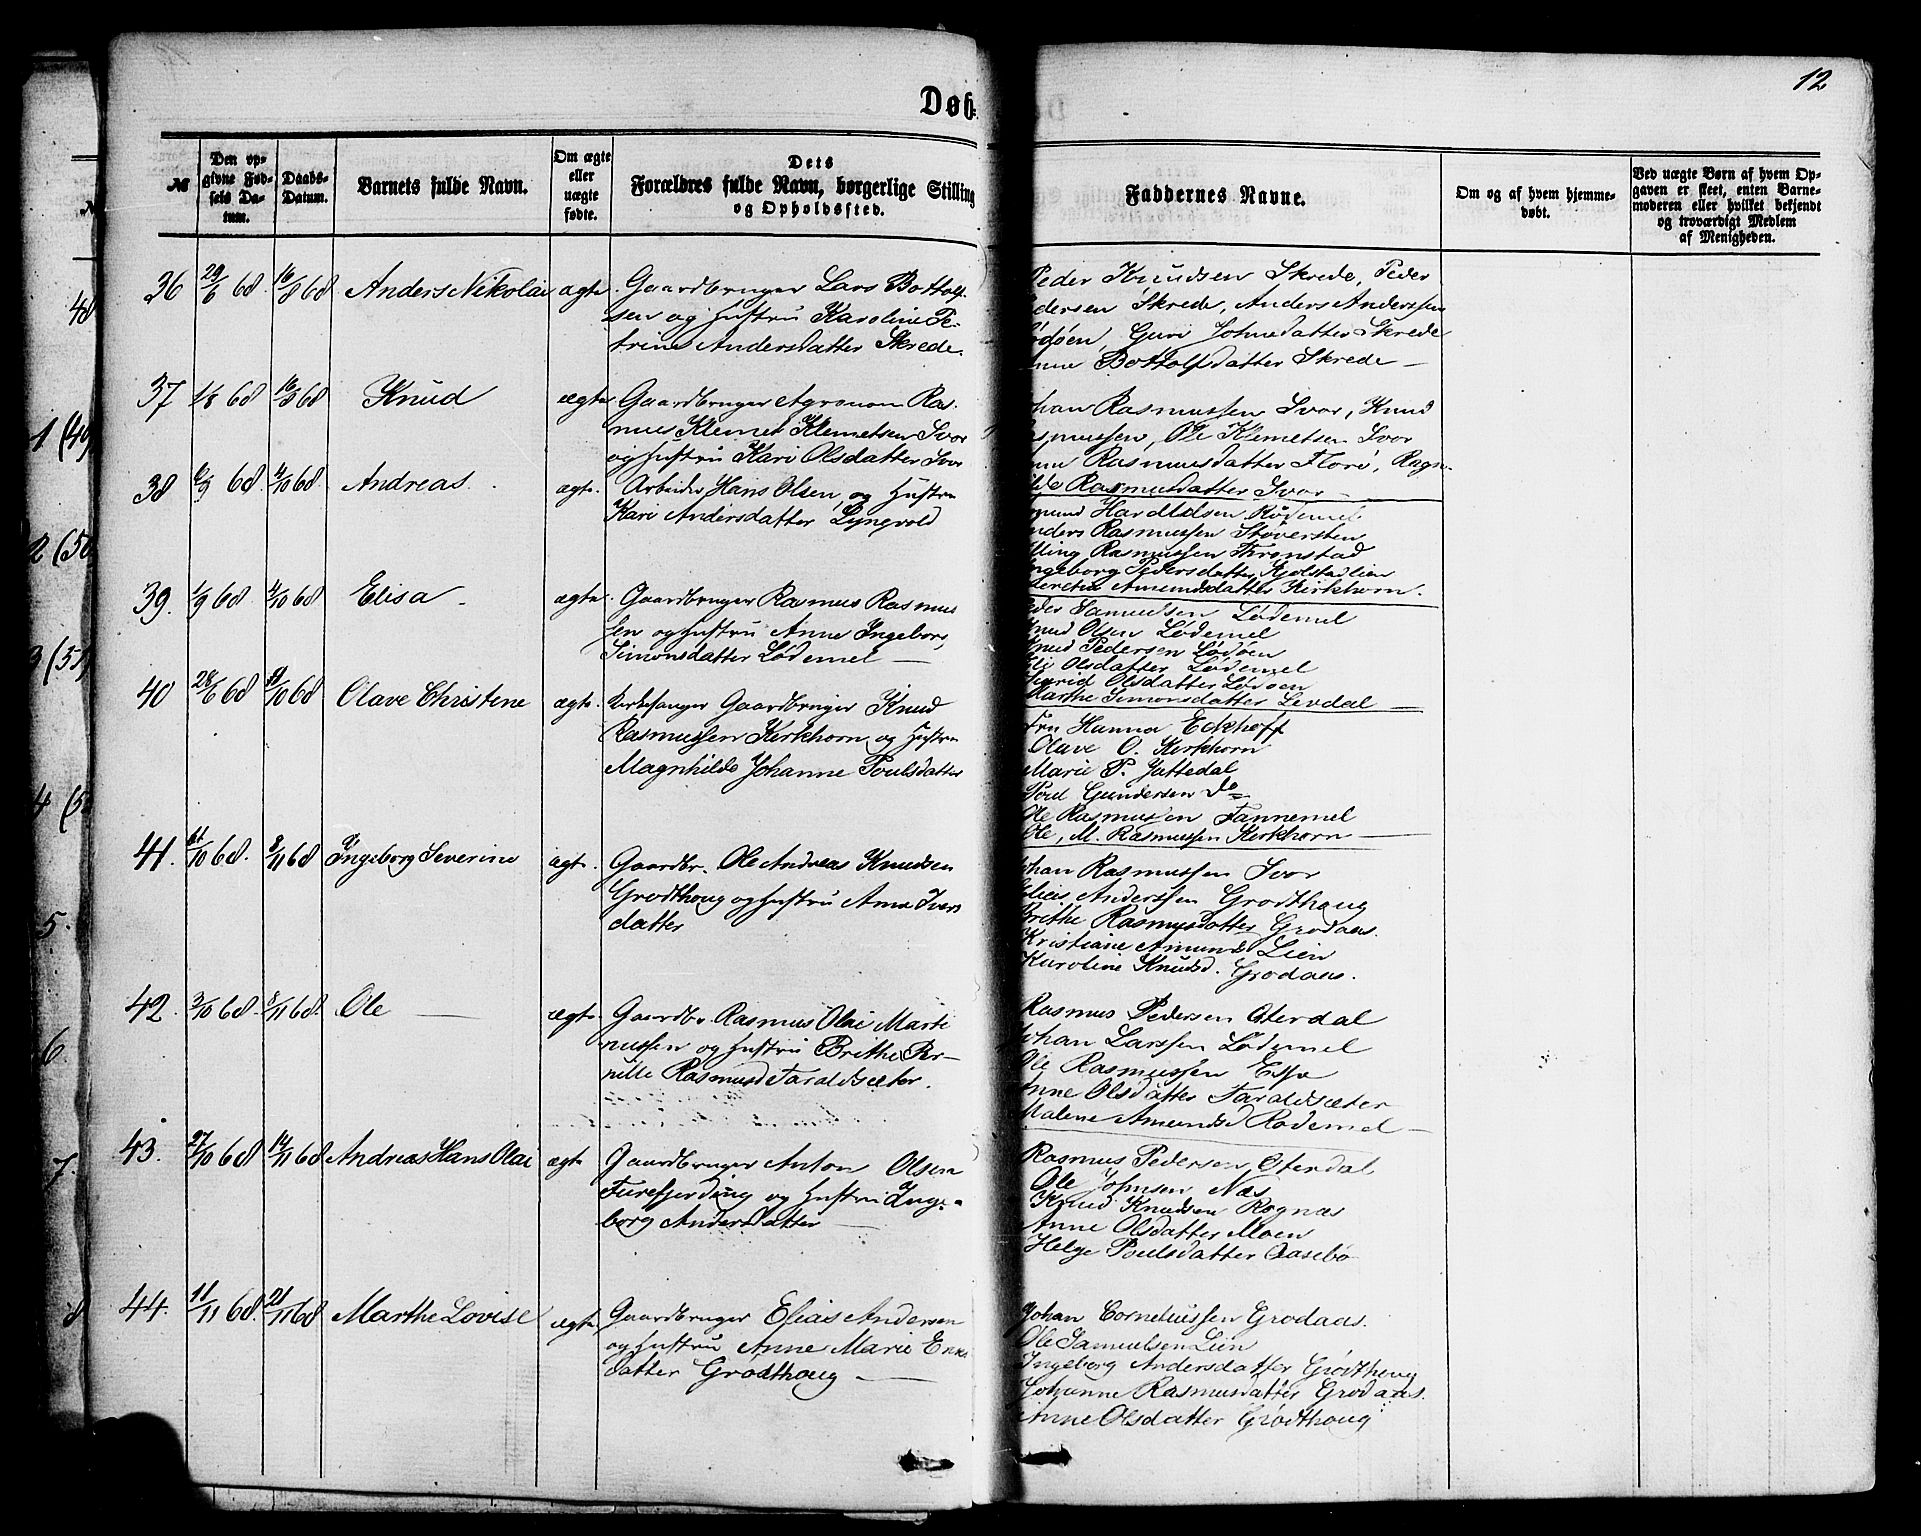 12
Døb-
№
Den op-
givne Fød-
sels Da-
tum.
Daabs-
Datum.
Barnets fulde Navn.
Om ægte
eller
uægte
fødte.
Dets
Forældres fulde Navn, borgerlige Stilling
og Opholdssted.
Faddernes Navne.
Om og af hvem hjemme-
døbt.
Ved uægte Børn af hvem Op-
gaven er skeet, enten Barne-
moderen eller hvilket bekjendt
og troværdigt Medlem
af Menigheden.
36 29/6 68. 16/8 68 Anders Nikolai ægte Gaardbruger Lars Bottolf-
sen og Hustru Karoline Pe-
trine Andersdatter Skrede.
Peder Knudsen Skrede, Peder
Pedersen Skrede, Anders Anderssen
Lødøen, Guri Johnsdatter Skrede
Bottolfsdatter Skrede —
37 1/8 68 16/8 68 Knud ægte Gaardbruger Agronom Ras-
mus Klemet Klemetsen Svor
og Hustru Kari Olsdatter Svor
Johan Rasmussen Svor, Knud
Rasmussen, Ole Klemetsen Svor
Rasmusdatter Florø, Ragn-
hilde Rasmusdatter Svor —
38 6/9 68. 4/10 68. Andreas. ægte. Arbeider Hans Olsen, og Hustru
Kari Andersdatter Lyngvold
Haraldsen Rødemel
Anders Rasmussen Støversten
Elling Rasmussen Thronstad
Ingeborg Pedersdatter Kjølstadlien
Amundsdatter Kirkhorn.
39. 1/9 68 4/10 68 Elisa — ægte. Gaardbruger Rasmus Rasmus
sen og Hustru Anne Ingeborg
Simonsdatter Lødemel —
Peder Samuelsen Lødemel
Knud Olsen Lødemel
Knud Pedersen Lødøen
Eli Olsdatter Lødemel
Sigrid Olsdatter Lødøen
Marthe Simonsdatter Levdal —
40 28/6 68 /10 68 Olave Christine ægte. Kirkesanger Gaardbruger Knud
Rasmussen Kirkhorn og Hustru
Magnhilde Johanne Poulsdatter
Fru Hanna Eckhoff
Olave O. Kirkhorn
Marie P. Jattedal
Gundersen Do
Ole Rasmussen Fannemel
Ole, M. Rasmussen Kirkhorn —
41. 11/10 68. 8/11 68 Ingeborg Severine ægte. Gaardbr. Ole Andreas Knudsen
Grodthoug og Hustru Ane Ivers
datter
Johan Rasmussen Svor
Elias Anderssen Grodthoug
Brithe Rasmusdatter Grodaas.
Kristiane Amunds Lien
Karoline Knudsd. Grodaas.
42. 3/10 68. 8/11 68. Ole — ægte. Gaardbr. Rasmus Olai Marti
nussen og Hustru Brithe Per-
nille Rasmusd Taraldsæter.
Rasmus Pedersen Oterdal
Johan Larssen Lødemel
Ole Rasmussen Espe
Anne Olsdatter Taraldsæter
Malene Amundsd Rødemel —
43. 27/10 68 14/11 68 Andreas Hans Olai ægte Gaardbruger Anton Olsen
Furefjerding og Hustru Inge-
borg Andersdatter —
Rasmus Pedersen Oterdal
Ole Johnsen Næs
Knud Knudsen Rognæs
Anne Olsdatter Moen
Helge Poulsdatter Aasebø
44. 11/11 68. 21/11 68 Marthe Lovise ægte Gaardbruger Elias Andersen
og Hustru Anne Marie
datter Grodthoug —
Johan Corneliussen Grodaas.
Ole Samuelsen Lien
Ingeborg Andersdatter Grodthoug
Johanne Rasmusdatter Grodaas.
Anne Olsdatter Grodthoug